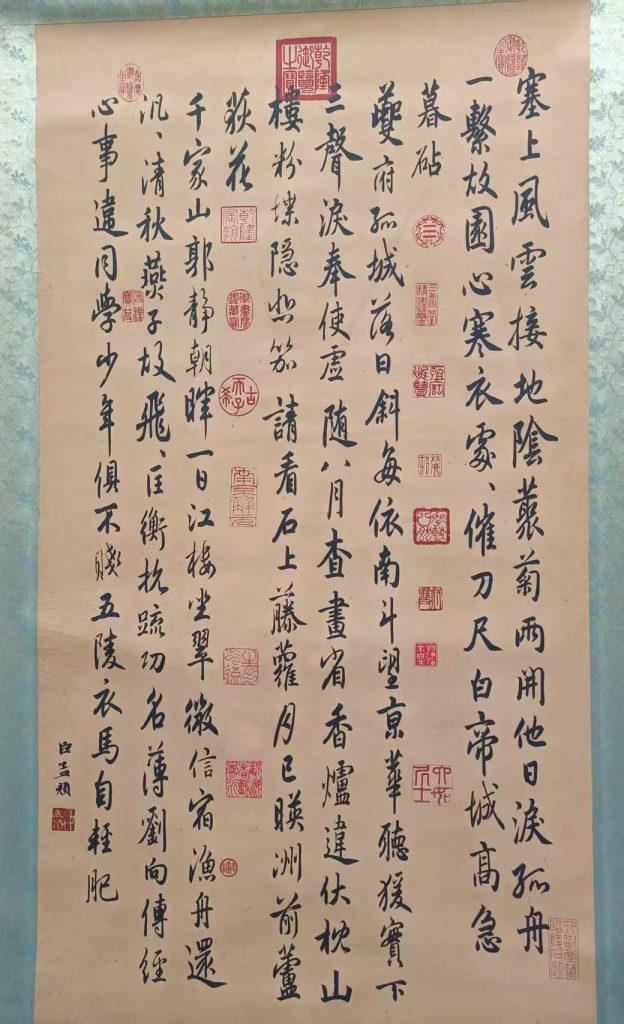 塞上風雲接地陰叢菊兩開他日淚孤舟
一繫故園心寒衣處、催刀尺白帝城高急
暮砧
夔府孤城落日斜每依南斗望京華聽猨實下
三聲淚奉使虛隨八月查畫省香爐違伏枕山
樓粉堞隱悲笳請看石上藤蘿月已暎洲前蘆
荻花
千家山郭靜朝暉一日江樓坐翠微信宿漁舟還
汎、清秋燕子故飛、匡衡抗疏功名薄劉向傳經
心事違同學少年俱不賤五陵衣馬自輕肥
臣孟頫
乾隆御覽之寶
古希天子